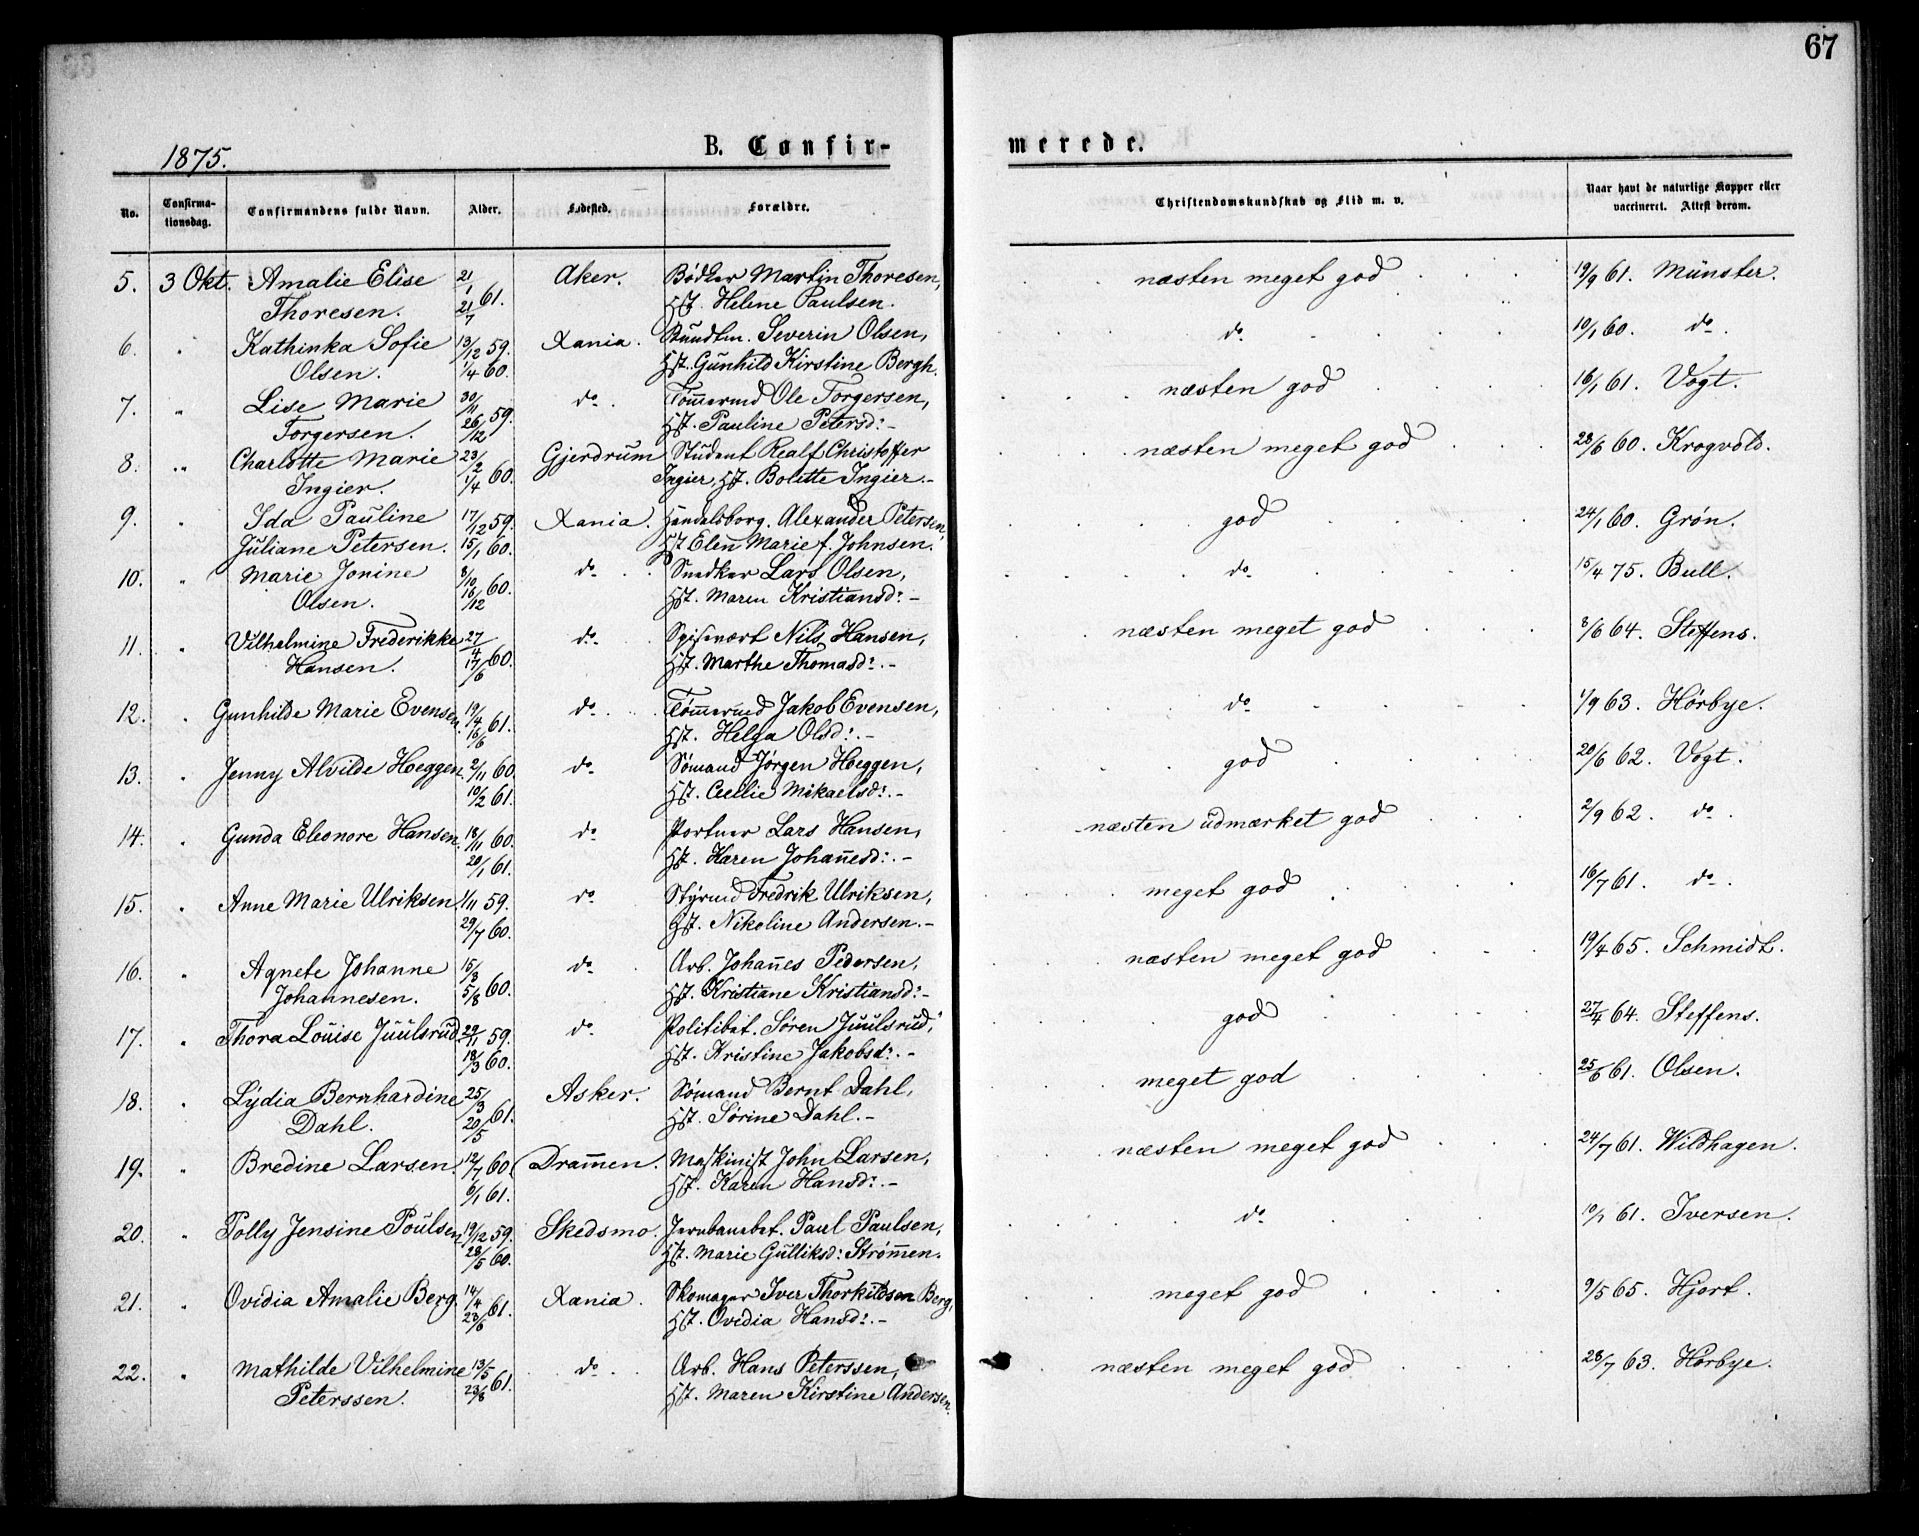 67
1875.
B. Confir-
merede.
No. Confirma-tionsdag. Confirmandens fulde Navn. Alder. Fødested. Forældre. Christendomskundskab og Flid m. v. Naar havt de naturlige Kopper eller vaccineret. Attest derom.
5. 3 Okt. Amalie Elise 21/1 Aker. Bødker Martin Thoresen, næsten meget god 19/9 61. Münster.
Thoresen. 21/7 61. Hst. Helene Paulsen.
6. " Kathinka Sofie 13/12 59. Xania. Bundtm. Severin Olsen, do 10/1 60. do.
Olsen. 1/4 60. Hst. Gunhild Kirstine Bergh.
7. " Lise Marie 30/11 do Tømmermd Ole Torgersen, næsten god 16/1 61. Vogt.
Torgersen. 26/12 59. Hst. Pauline Petersd:-
8. " Charlotte Marie 23/2 Gjerdrum Student Realf Christoffer næsten meget god 28/6 60. Krogvold.
Ingier. 1/4 60. Ingier, Hst. Bolette Ingier.-
9. " Ida Pauline 17/12 59. Xania. Handelsborg. Alexander Petersen, god 24/1 60. Grøn.
Juliane Petersen. 15/1 60. Hst Elen Marie f. Johnsen.
10. " Marie Jonine 8/10 do Snedker Lars Olsen, do 15/4 75. Bull.
Olsen. 16/12 60. Hst. Maren Kristiansd:-
11. " Vilhelmine Frederikke 27/4 do Spisevært Nils Hansen, næsten meget god 8/6 64. Steffens.
Hansen. 17/6 60. Hst. Marthe Thomasd:.-
12. " Gunhilde Marie Evensen. 19/4 do Tømmermd Jakob Evensen, do 1/9 63. Hørbye.
16/6 61. Hst. Helga Olsd:.-
13. " Jenny Alvilde Hoeggen. 2/11 60. do Sømand Jørgen Hoeggen, god 20/6 62. Vogt.
10/2 61. Hst. Cecilie Mikaelsd:.-
14. " Gunda Eleonore Hansen. 18/11 60. do Portner Lars Hansen, næsten udmærket god 2/9 62. do.
20/1 61. Hst. Karen Johannesd:.-
15. " Anne Marie Ulriksen. 1/11 59. do Styrmd Fredrik Ulriksen, meget god 16/7 61. do.
29/7 60. Hst. Nikoline Andersen.-
16. " Agnete Johanne 15/3 do Arb. Johannes Pedersen, næsten meget god 19/4 65. Schmidt.
Johannesen. 5/8 60. Hst. Kristiane Kristiansd:-
17. " Thora Louise Juulsrud 29/11 59. do Politibet. Søren Juulsrud, god 27/4 64. Steffens.
18/3 60. Hst. Kristine Jakobsd:.-
18. " Lydia Bernhardine 25/3 Asker. Sømand Bernt Dahl, meget god 25/6 61. Olsen.
Dahl. 20/5 61. Hst. Sørine Dahl.-
19. " Bredine Larsen. 12/7 60. Drammen. Maskinist John Larsen, næsten meget god 24/7 61. Wildhagen.
6/1 61. Hst. Karen Hansd:.-
20. " Polly Jensine Poulsen 19/12 59. Skedsmo. Jernbanebet. Paul Paulsen, do 10/7 61. Iversen.
28/5 60. Hst. Marie Gulliksd: Strømmen.
21. " Ovidia Amalie Berg. 14/4 Xania. Skomager Iver Thorkildsen Berg, meget god 9/5 65. Hjort.
23/6 61. Hst. Ovidia Hansd:.-
22. " Mathilde Vilhelmine 13/5 do Arb. Hans Peterssen, næsten meget god 28/7 63. Hørbye.
Peterssen. 23/8 61. Hst. Maren Kirstine Andersen.